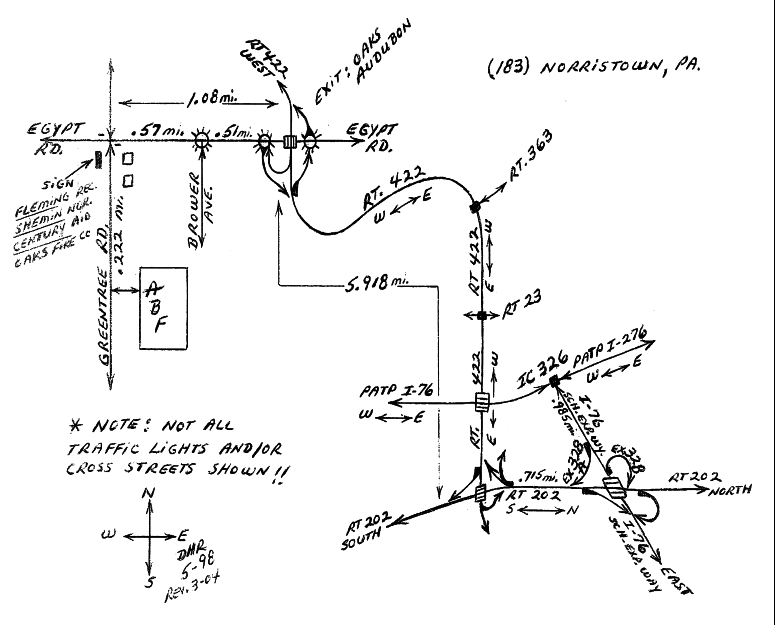 (183) NORRISTOWN, PA.
RT 422
WEST
EXIT: OAKS
AUDUBON
1.08 mi.
EGYPT
RD.
.57 mi.
.51 mi.
EGYPT
RD.
SIGN
FLEMING REC.
SHEMIN NUR.
CENTURY AID
OAKS FIRE CO
GREENTREE RD.
.222 mi.
BROWER
AVE.
A
B
F
RT. 422
W E
RT. 363
RT 422
W
E
5.918 mi.
RT 23
RT. 422
W
E
PATP I-76
W E
IC 326
PATP I-276
W E
I-76
SCH. EXP. WY.
.985 mi.
EX 328
A
EX 328
.715 mi.
RT 202
S N
RT 202
NORTH
RT 202
SOUTH
I-76
SCH. EXP. WAY
EAST
* NOTE: NOT ALL
TRAFFIC LIGHTS AND/OR
CROSS STREETS SHOWN!!
N
W E
S
DMR
5-98
REV. 3-04